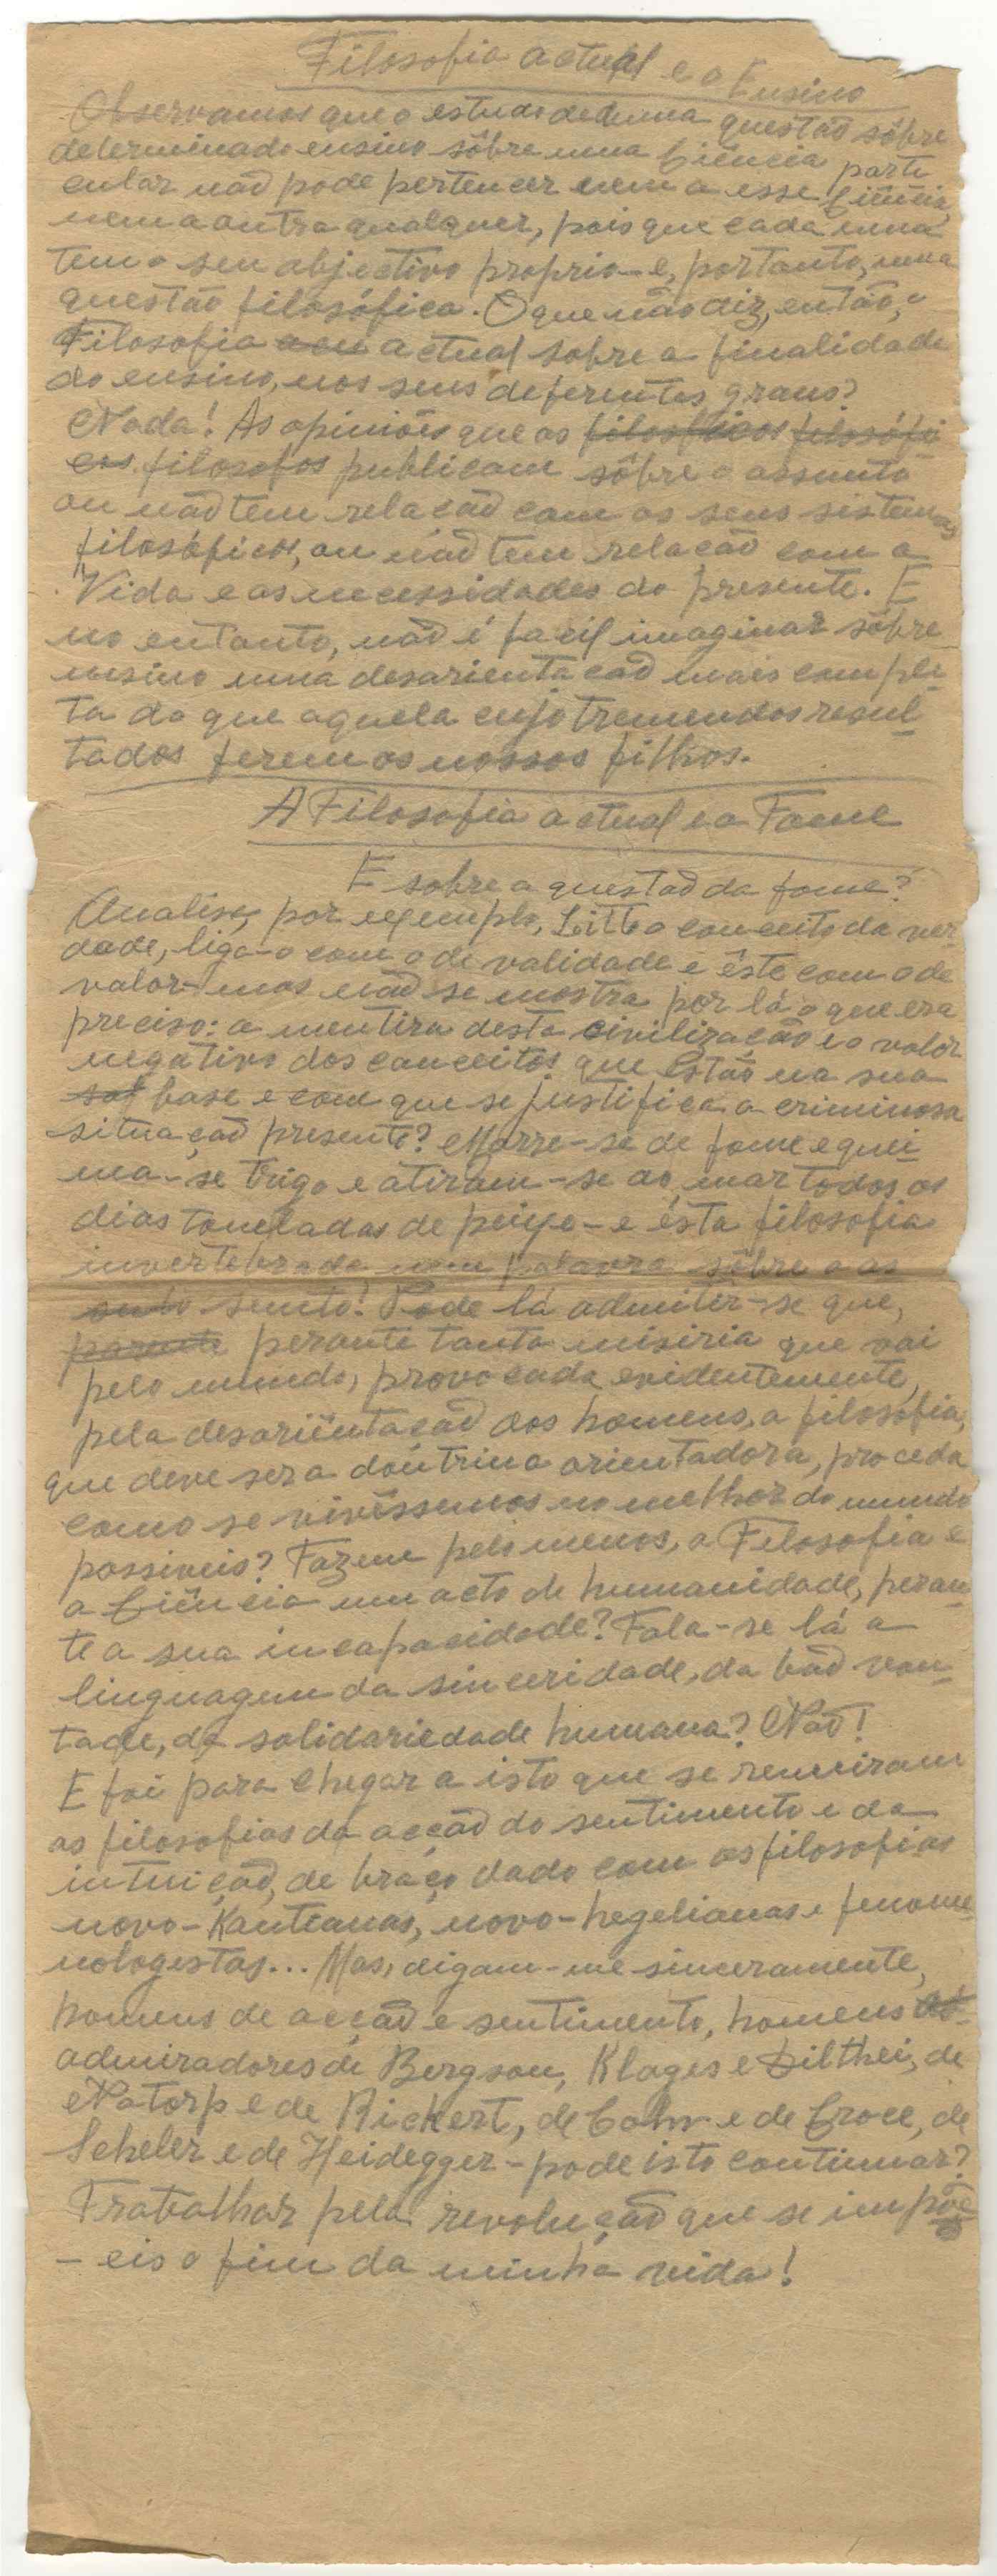 Filosofia actual e o Ensino
Observamos que o estudo de uma questão sôbre
determinado ensino sôbre uma Ciência parti
cular não pode pertencer nem a esse Ciência,
nem a outra qualquer, pois que cada uma
tem o seu objectivo proprio – e, portanto, uma
questão filosófica. O que não diz, então, a
Filosofia actual sobre a finalidade
do ensino, nos seus deferentes graus?
Nada! As opiniões que os filosóficos filosófi
cos filosofos publicam sôbre o assunto
ou não tem relação com os seus sistemas
filosóficos, ou não tem relação com a
Vida e as necessidades do presente. E
no entanto, não é facil imaginar sôbre
ensino uma desorientação mais comple
ta do que aquela cujo tremendos resul
tados ferem os nossos filhos.
A Filosofia actual e a Fome
E sobre a questão da fome?
Analise, por exemplo, Litt o conceito da ver
dade, liga-o com o de validade e êste com o de
valor – mas não se mostra por lá o que era
preciso: a mentira desta civilização e o valor
negativo dos conceitos que estão na sua
sob base e com que se justifica a criminosa
situação presente? Morre-se de fome e quei
ma-se trigo e atiram-se ao mar todos os
dias toneladas de peixe – e esta filosofia
invertebrada nem palavra sôbre o as
sunto sunto! Pode lá admitir-se que,
parante perante tanta misiria que vai
pelo mundo, provocada evidentemente,
pela desoriëntação dos homens, a filosofia,
que deve ser a doutrina orientadora, proceda
como se vivêssemos no melhor do mundo
possiveis? Fazem pelo menos, a Filosofia e
a Ciência um acto de humanidade, peran
te a sua incapacidade? Fala-se lá a
linguagem da sinceridade, da bôa von
tade, da solidariedade humana? Não!
E foi para chegar a isto que se reuniram
as filosofias da acção do sentimento e da
intuição, de braço dado com as filosofias
novo-Kantianas, novo-hegelianas e fenome
nologistas... Mas, digam-me sinceramente,
homens de acção e sentimento, homens
admiradores de Bergson, Klages e Dilthei, de
Natorp e de Rickert, de Cohn e de Croce, de
Scheler e de Heidegger – pode isto continuar?
Trabalhar pela revolução que se impõe
– eis o fim da minha vida!